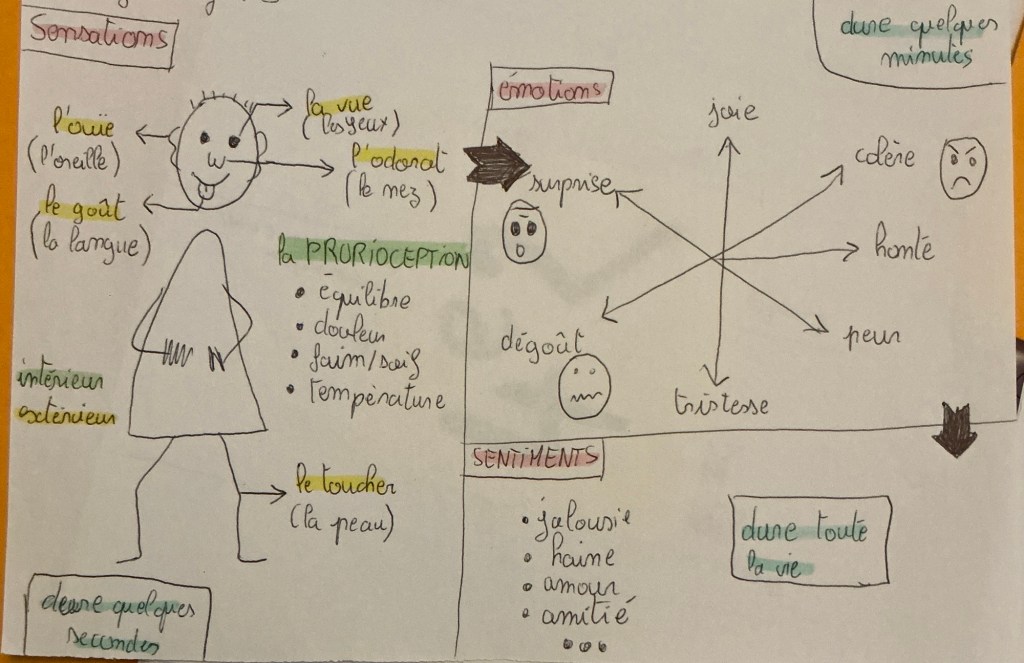 Sensations
l'ouïe
(l'oreille)
la vue
(les yeux)
l'odorat
(le nez)
le goût
(la langue)
la PRORIOCEPTION
• équilibre
• douleur
• faim/soif
• température
intérieur
extérieur
le toucher
(la peau)
dure quelques
secondes
émotions
dure quelques
minutes
joie
colère
surprise
honte
dégoût
peur
tristesse
SENTIMENTS
• jalousie
• haine
• amour
• amitié
•••
dure toute
la vie